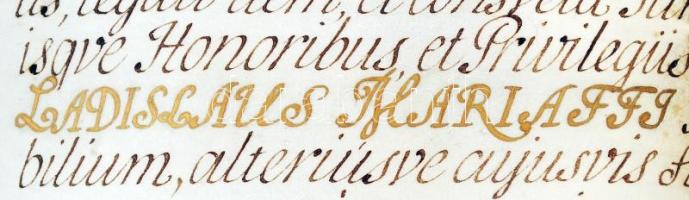 us, legali item, et consveta
isqve Honoribus, et Privilegiis
LADISLAUS MARIAFFI
bilium, alteriusve cujusvis